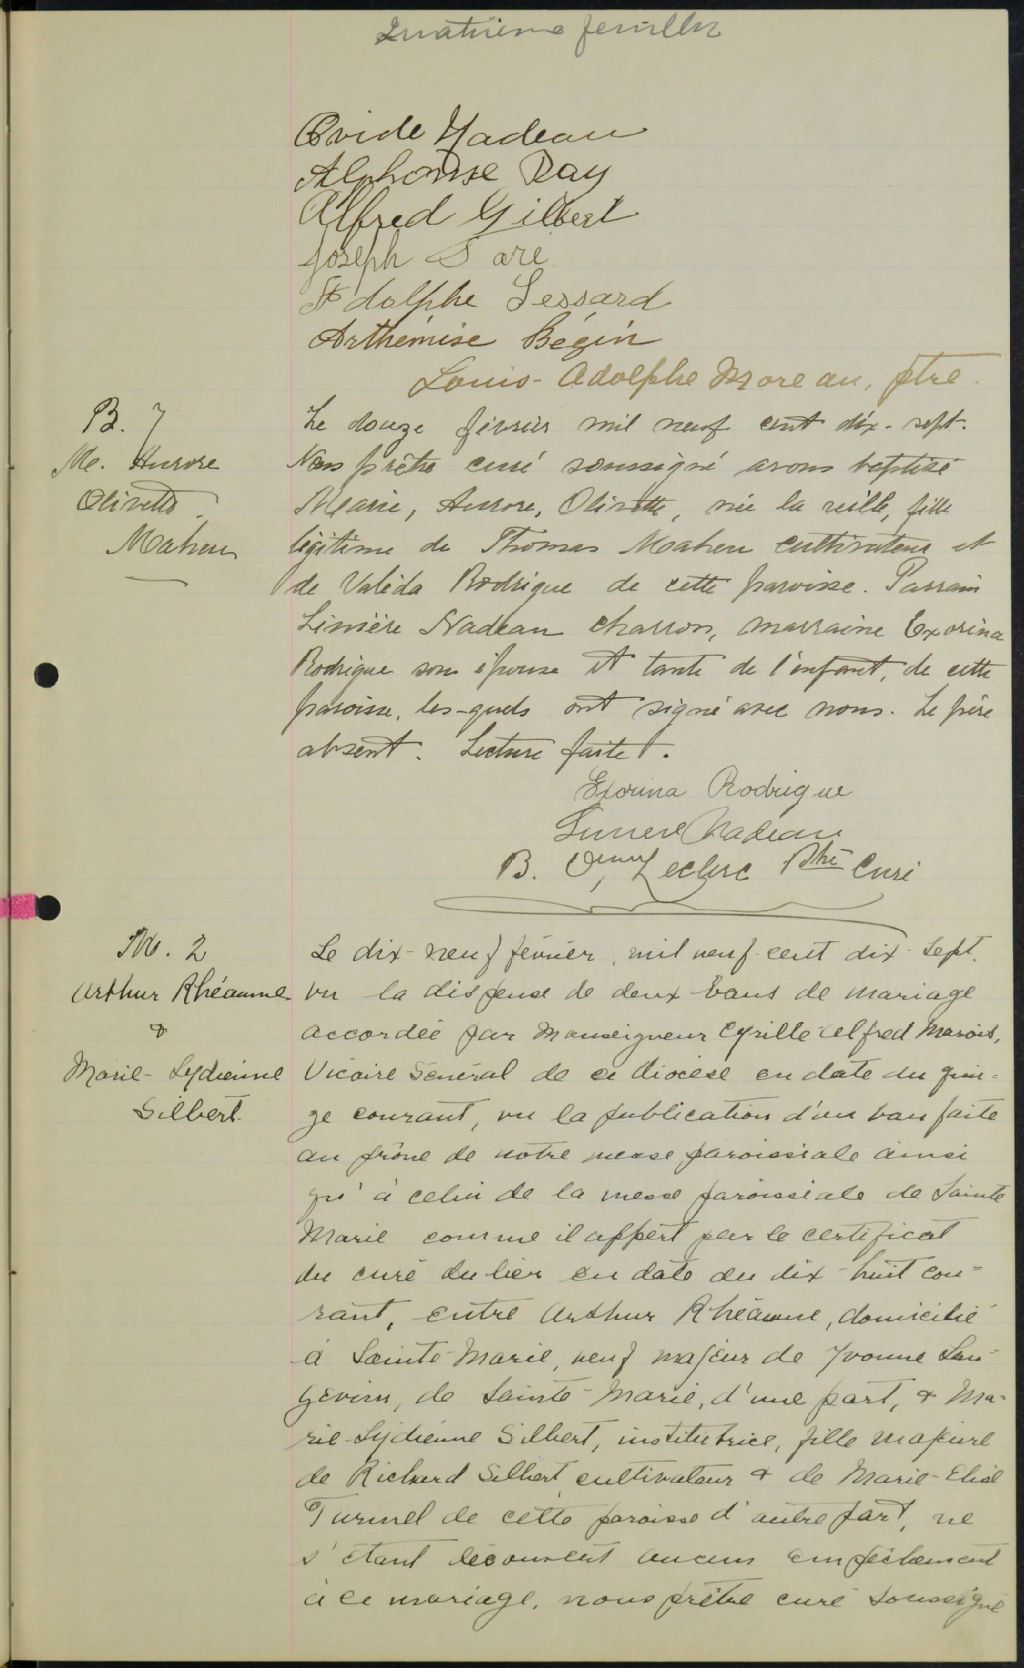 Quatrième feuillet
Ovide Nadeau
Alphonse Ray
Alfred Gilbert
Joseph Saré
Adolphe Lessard
Arthémise Bégin
Louis-Adolphe Moreau, ptre.
B. 7
Me. Aurore
Olivette
Maheu
Le douze février mil neuf cent dix-sept.
Nous prêtre curé soussigné avons baptisé
Marie, Aurore, Olivette, née la veille, fille
légitime de Thomas Maheu cultivateur et
de Valéda Rodrigue de cette paroisse. Parrain
Linière Nadeau charron, marraine Exorina
Rodrigue son épouse et tante de l'enfant, de cette
paroisse, les-quels ont signé avec nous. Le père
absent. Lecture faite.
Exorina Rodrigue
Linière Nadeau
B. Leclerc Ptre Curé
M. 2
Arthur Rhéaume
&
Marie-Lydienne
Gilbert.
Le dix-neuf février, mil neuf-cent dix-sept,
vu la dispense de deux bans de mariage
accordée par Monseigneur Cyrille Alfred Marois,
Vicaire Général de ce diocèse en date du quin-
ze courant, vu la publication d'un ban faite
au prône de notre messe paroissiale ainsi
qu'à celui de la messe paroissiale de Sainte
Marie comme il appert par le certificat
du curé du lieu en date du dix-huit cou-
rant, entre Arthur Rhéaume, domicilié
à Sainte-Marie, veuf majeur de Yvonne Lan-
gevin, de Sainte-Marie, d'une part, & Ma-
rie-Lydienne Gilbert, institutrice, fille majeure
de Richard Gilbert cultivateur & de Marie-Elise
Turmel de cette paroisse d'autre part, ne
s'étant découvert aucun empêchement
à ce mariage, nous prêtre curé soussigné